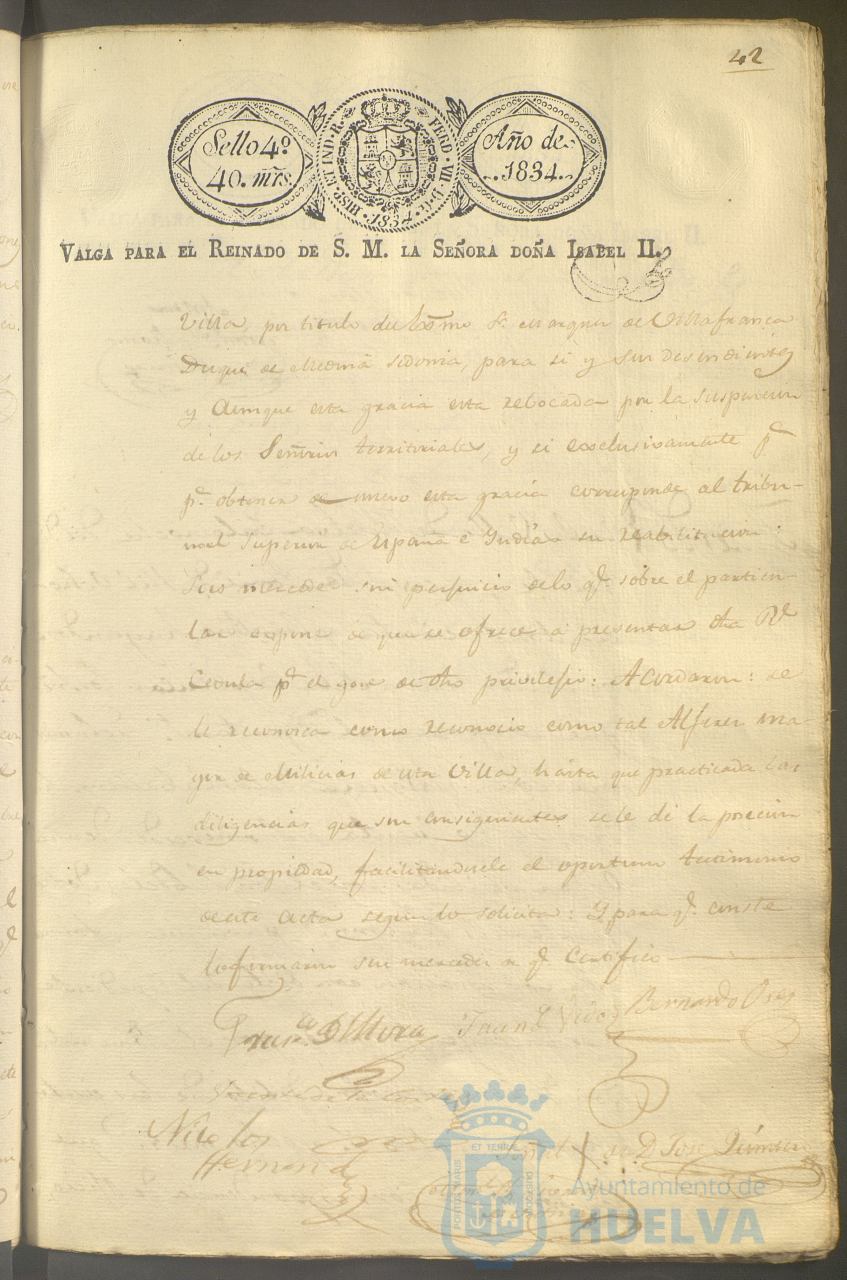 42
Sello 4º
40. mrs.
HISP. ET IND. R. FERD. VII. D. G. 1834.
Año de
1834.
VALGA PARA EL REINADO DE S. M. LA SEÑORA DOÑA ISABEL II.
Villa, por titulo del Exmo Sr. Marques de Villafranca
Duque de Medina Sidonia, para si y sus desendientes
y Aunque esta gracia esta rebocada por la suspencion
de los Señorios territoriales, y si exclusivamente pª
pª obtener de nuevo esta gracia corresponde al tribu-
nal Superior de España e Yndias su reabilitacion:
Sus mercedes sin perjuicio de lo qe. sobre el particu-
lar espone de que se ofrece a presentar dha Rl
Cedula pª el gose de dho privilegio: Acordaron: se
le reconosca como reconocio como tal Alferes ma-
yor de Milicias de esta Villa, hasta que practicada las
diligencias que son consiguientes se le dé la posecion
en propiedad, facilitandosele el oportuno testimonio
de este Acta segun lo solicita: Y para qe. conste
lo firmaron sus mercedes de qe Certifico
Franco. de Mora
Bernardo
Vicente de la
Nicolas
Hernand
de D. Jose
PORTUS MARIS ET TERRAE CUSTODIA
Ayuntamiento de
HUELVA